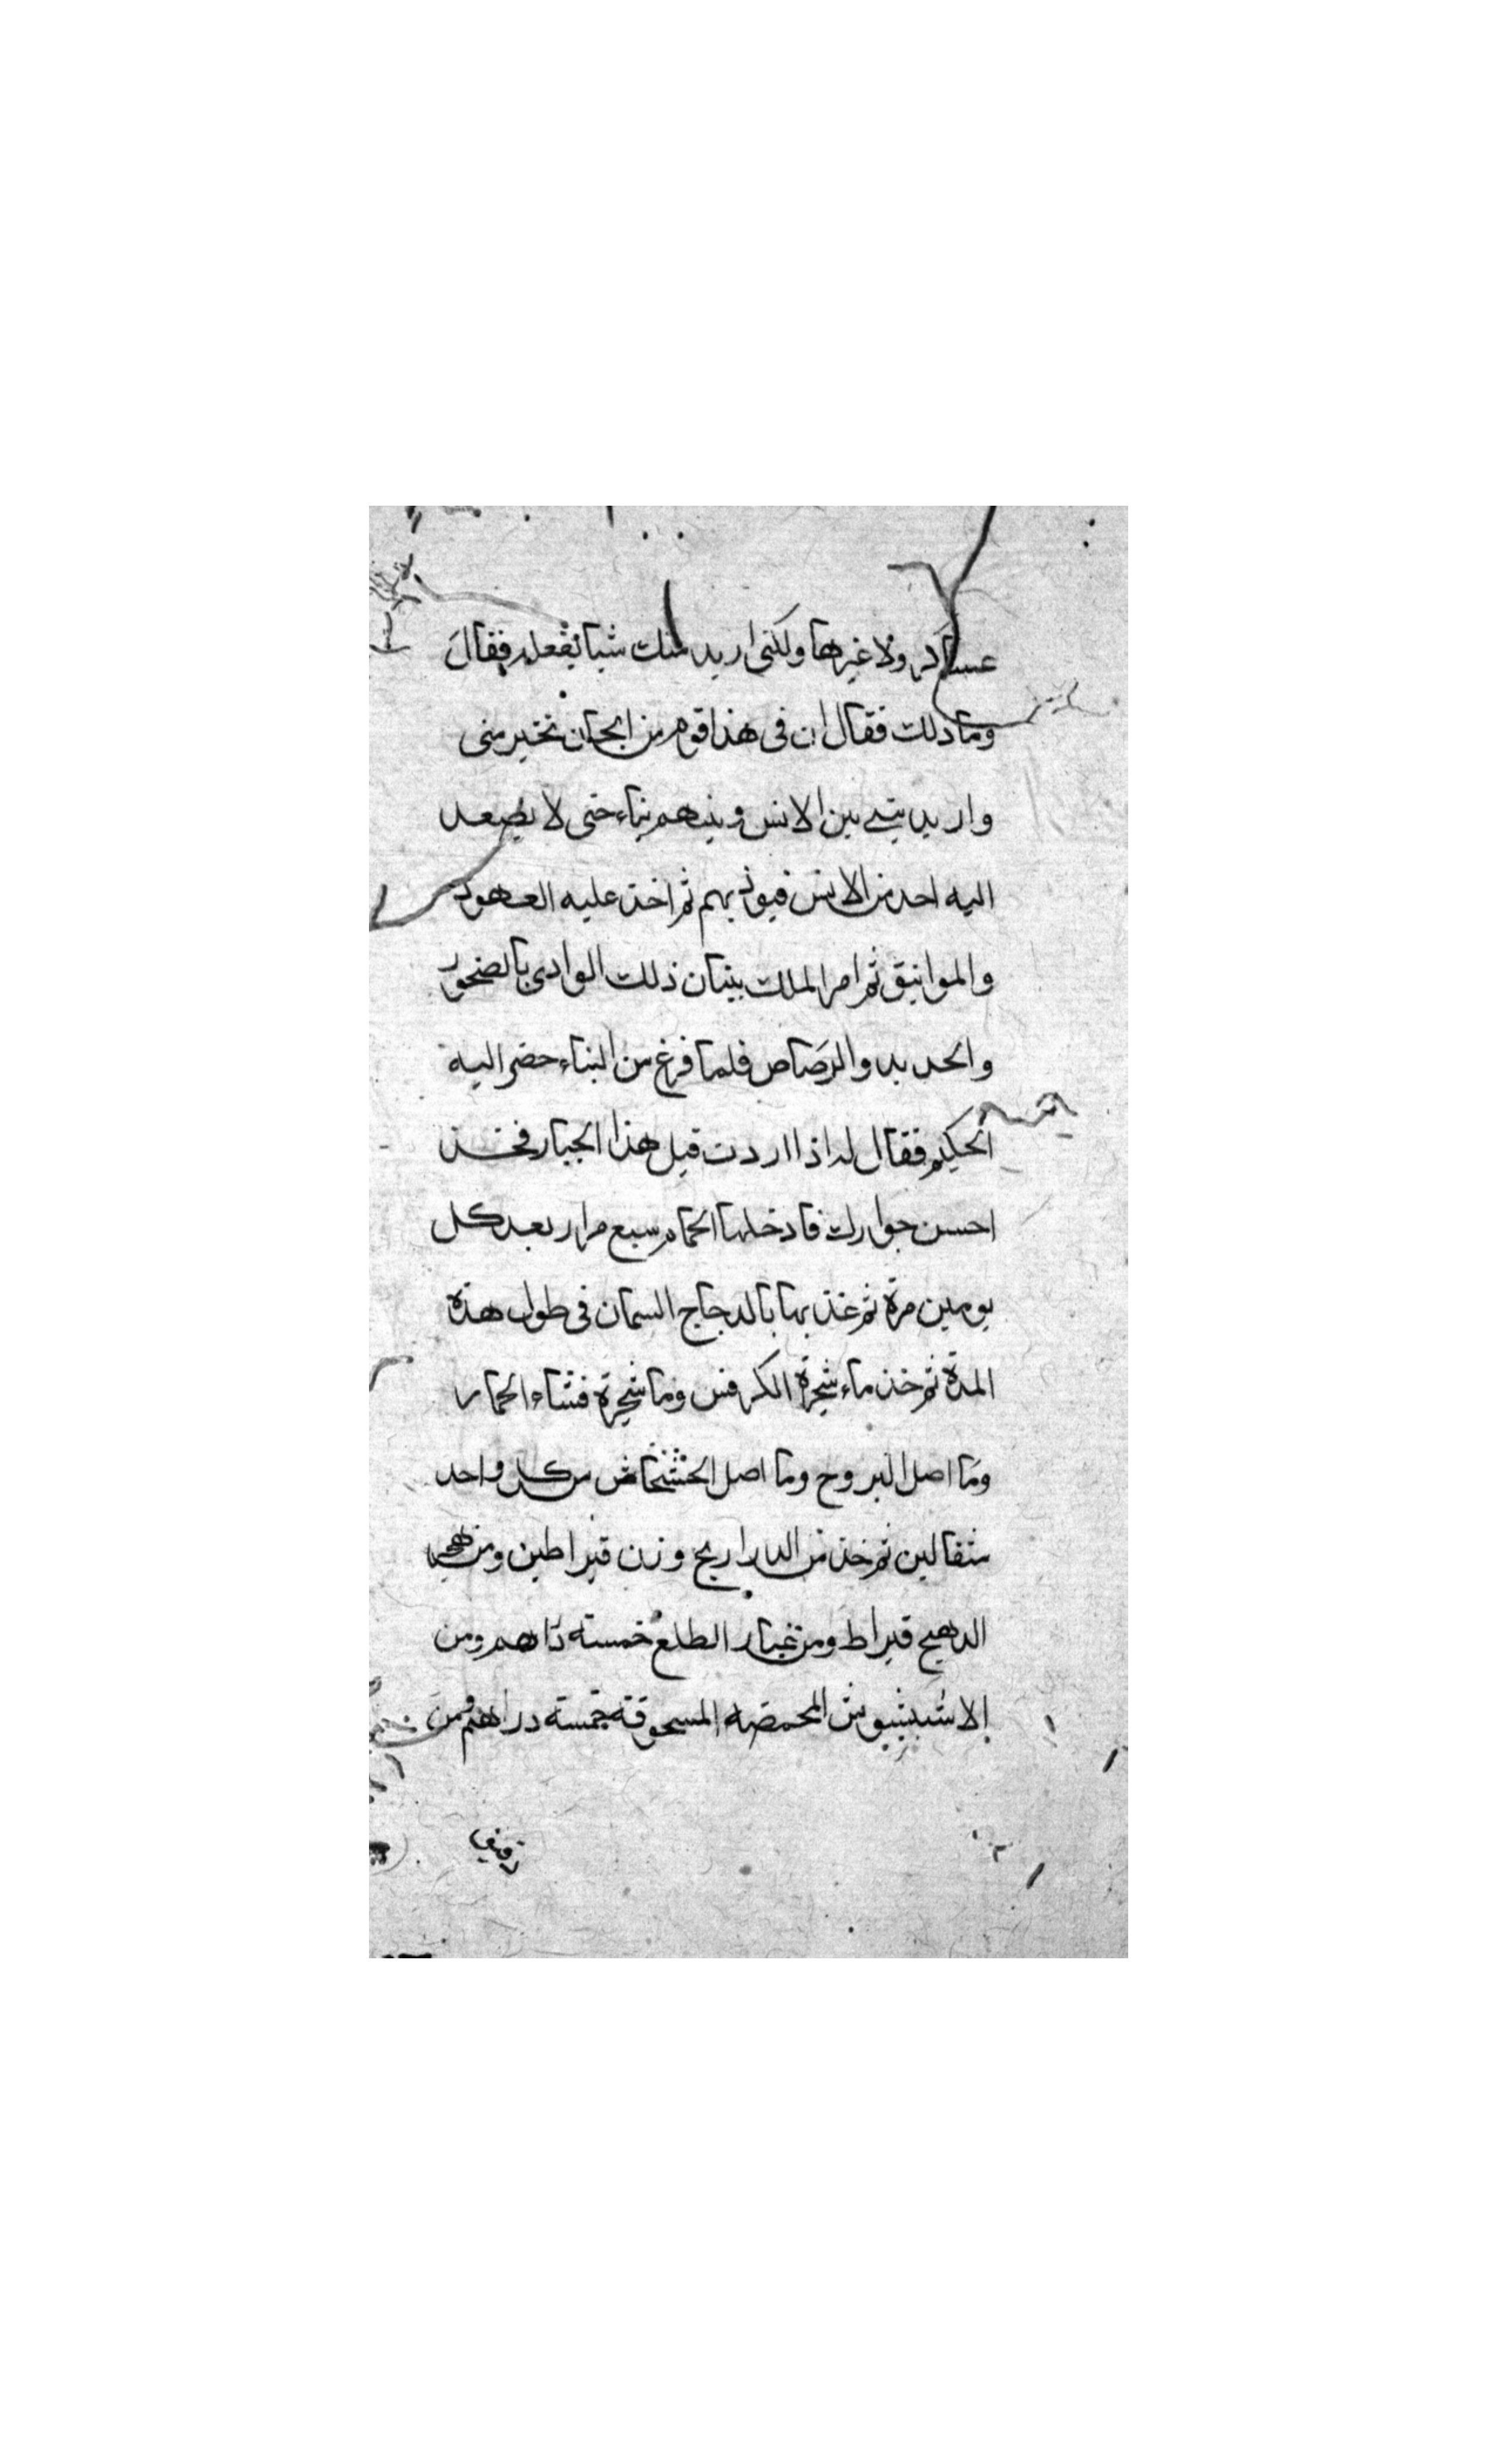 عساكر ولا غيرها ولكنى اريد منك شيا تفعله فقال
وما ذلك فقال ان فى هذا قوم من الجان تختبر منى
واريد بينى بين الانس وبينهم بناء حتى لا يصعد
اليه احد من الانس فيوذيهم ثم اخذ عليه العهود
والمواثيق ثم امر الملك ببنيان ذلك الوادى بالصخور
والحديد والرصاص فلما فرغ من البناء حضر اليه
الحكيم فقال له اذا اردت قبل هذا الجبار فخذ
احسن جوارك فادخلها الحمام سبع مرار بعد كل
يومين مرة ثم غذيها بالدجاج السمان فى طول هذه
المدة ثم خذ ماء شجرة الكرفس وما شجرة قثاء الحمار
وما اصل اليبروح وما اصل الخشخاش من كل واحد
مثقالين ثم خذ من الدراريح وزن قيراطين ومن
الدهيج قيراط ومن غبار الطلع خمسة دراهم ومن
المحمضه المسحوقة خمسة دراهم ومن